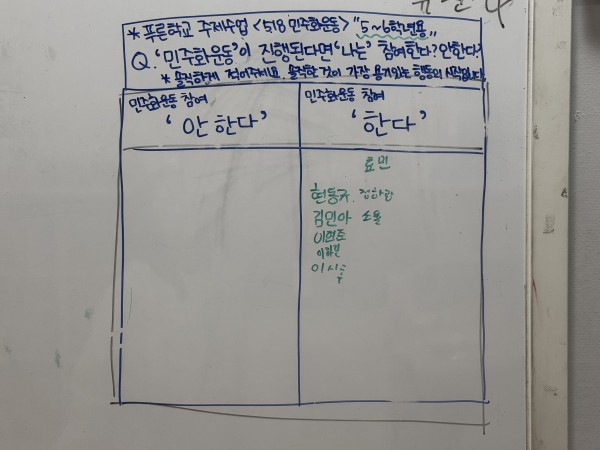 * 푸른학교 주제수업 <5.18 민주화운동> "5~6학년용"
Q. '민주화운동'이 진행된다면 '나는' 참여한다? 안한다?
* 솔직하게 적어주세요. 솔직한 것이 가장 용기있는 행동의 시작입니다
민주화운동 참여
'안 한다'
민주화운동 참여
'한다'
효민
현동규 정하랑
김민아 소율
이현준
이시우